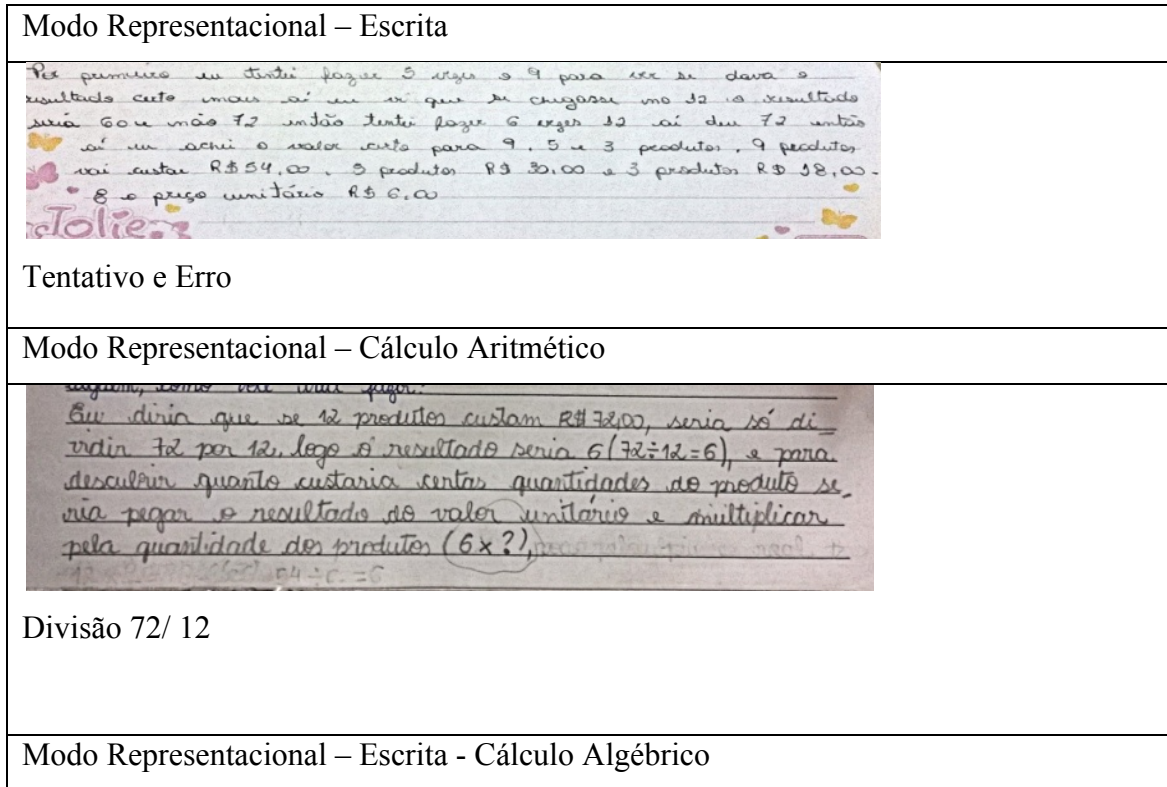 Modo Representacional – Escrita
Por primeiro eu tentei fazer 5 vezes o 9 para ver se dava o
resultado certo mais aí eu vi que se chegasse no 12 o resultado
seria 60 e não 72 então tentei fazer 6 vezes 12 aí deu 72 então
aí eu achei o valor certo para 9, 5 e 3 produtos, 9 produtos
vai custar R$54,00. 5 produtos R$ 30,00 e 3 produtos R$ 18,00.
8 o preço unitário R$ 6,00
Jolie
Tentativo e Erro
Modo Representacional – Cálculo Aritmético
Eu diria que se 12 produtos custam R$ 72,00, seria só di_
vidir 72 por 12, logo o resultado seria 6 (72÷12=6), e para
descubrir quanto custaria certas quantidades do produto se_
ria pegar o resultado do valor unitário e multiplicar
pela quantidade dos produtos (6 x ?),
54 ÷ =6
Divisão 72/ 12
Modo Representacional – Escrita - Cálculo Algébrico